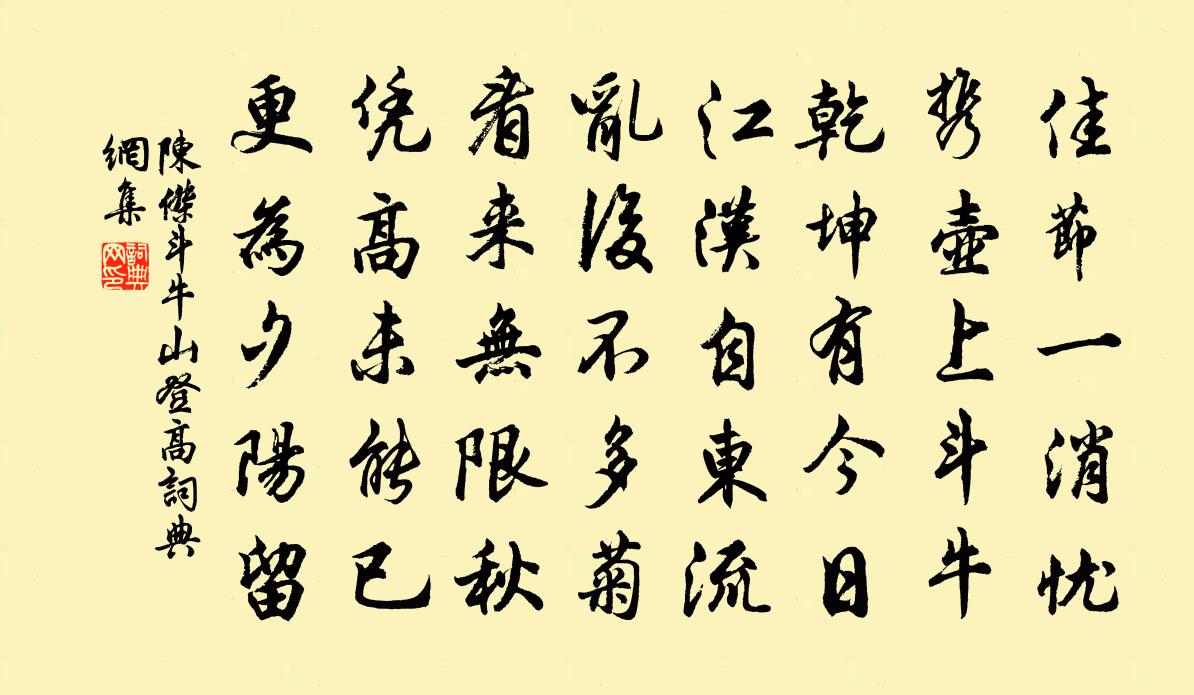 佳節一消忧
携壺上斗牛
乾坤有今日
江漢自東流
亂後不多菊
看来無限秋
凭高未能已
更為夕陽留
陳傑斗牛山登高詞典
網集
詞典
网印